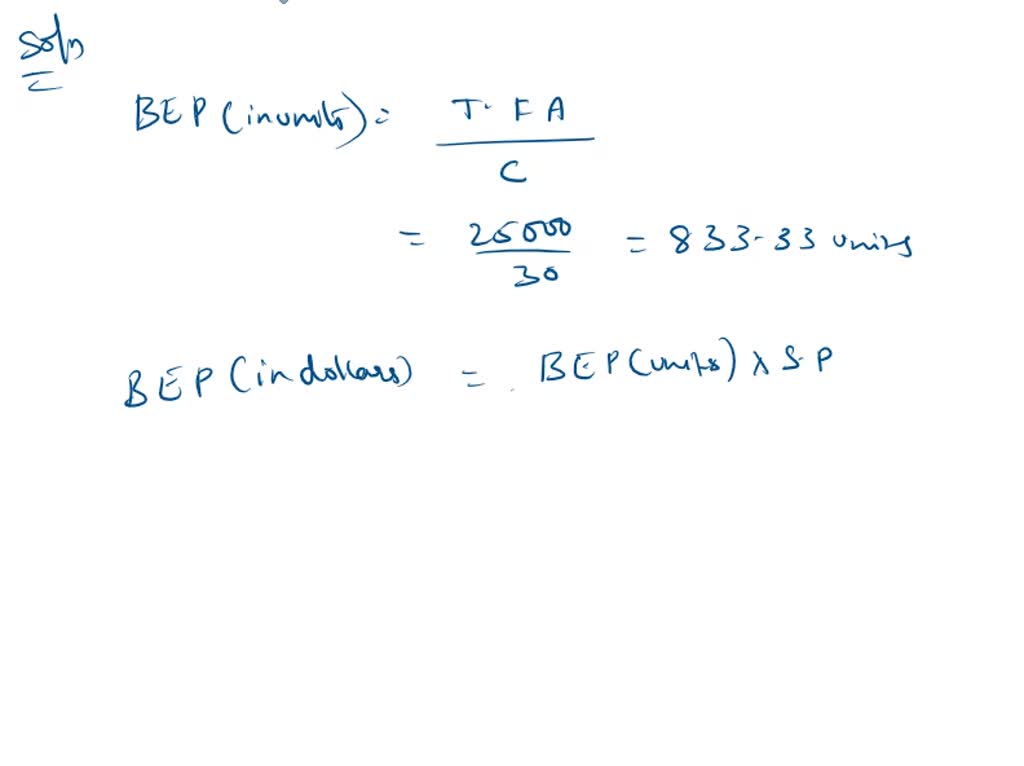 Soln
BEP (in units) = T. F A
C
= 25000 = 833.33 units
30
BEP (in dollars) = BEP (units) x S.P